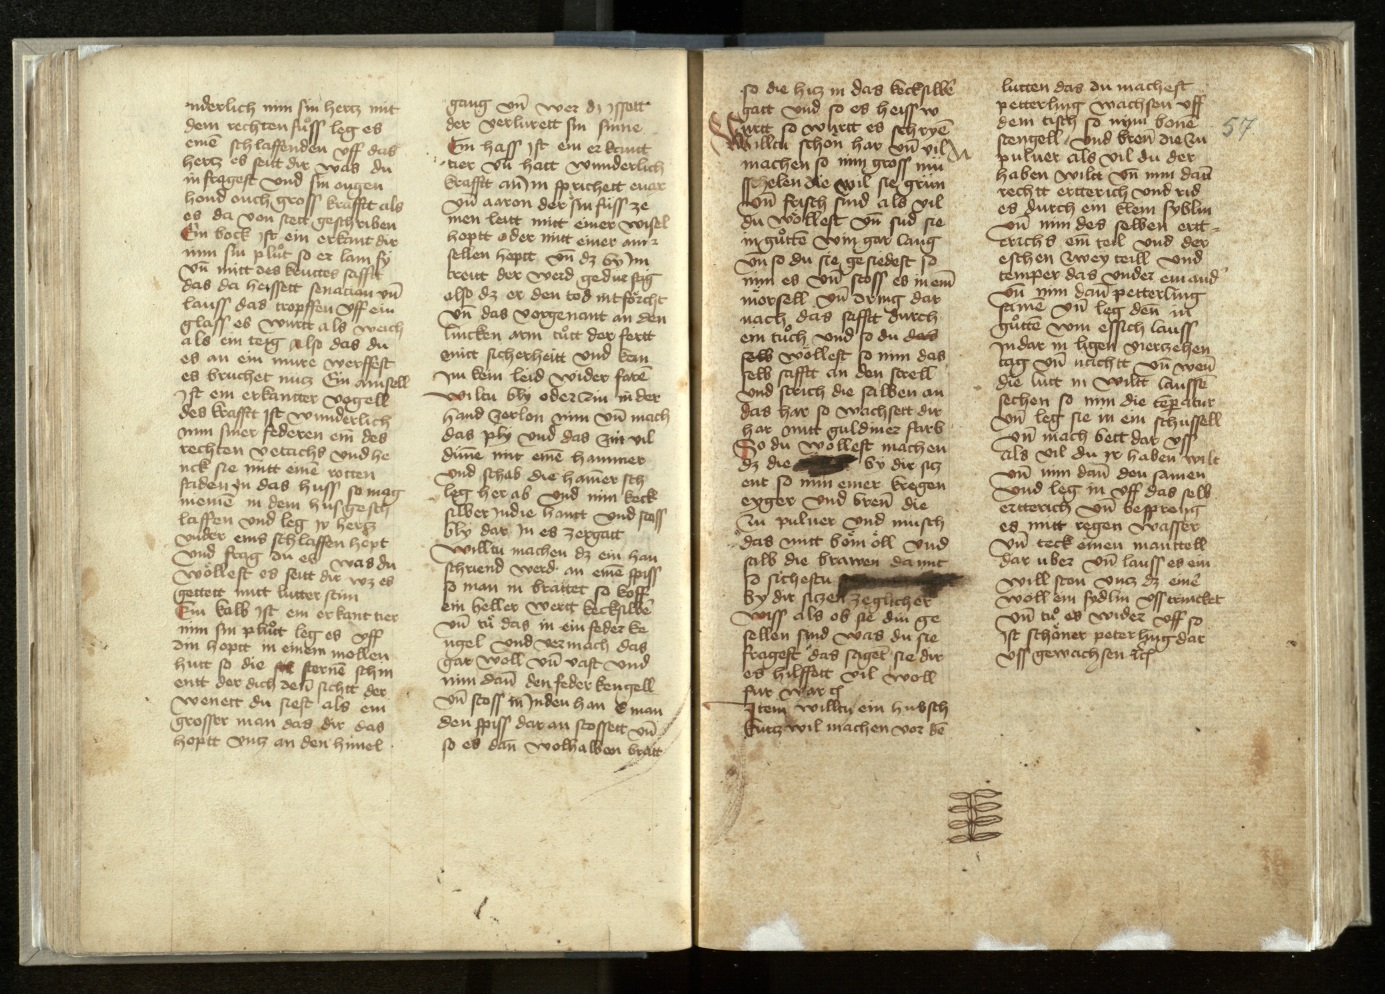 nderlich nim sin hertz mit
dem rechten fuͦss leg es
einē schlaffenden vff das
hertz es seitt dir was du
in fragest vnd sin ougen
hond ouch gross krafft als
es da von stett geschriben
Ein bock ist ein erkant dir
nim sin pluͦt so er lam sy
vn̄ mitt des kruttes safft
das da heissett senacion vn̄
lauss das tropffen vff ein
glass es wurtt als weich
als ein teig also das du
es an ein mure werffest
es bruchet nutz Ein amsell
ist ein erkantter vogell
des krafft ist wunderlich
nim siner federen ein̄ des
rechten vettichs vnd he
nck sie mitt einē rotten
faden in das huss so mag
niemen in dem hus gesch
laffen vnd leg ir hertz
vnder eins schlaffen hopt
vnd frag du es was du
wöllest es seitt dir wz es
gettett mitt lutter stim
Ein kalb ist ein erkant tier
nim sin pluͦtt leg es vff
din hoptt in einem mollen
hutt so die sternē schin
entt der dich den̄ sichtt der
wenett du siest als ein
grosser man das dir das
hoptt vntz an den himel
gang vn̄ wer dz issett
der verlurett sin sinne
Ein hass ist ein erkantt
tier vn̄ hatt wunderlich
krafftt an im sprichett euax
vn̄ aaron der sin fuͦss ze
men leitt mitt einer wisel
hoptt oder mitt einer am
sellen hoptt vn̄ dz by im
treitt der werd gedurstig
also dz er den tod nit förcht
vn̄ das vorgenant an den
lincken arm tuͦtt der fertt
mitt sicherheitt vnd kan
im kein leid wider farē
wiltu bly oder zin in der
hand zerlon nim vn̄ mach
das ply vnd das zin vil
dün̄e mit einē hammer
vnd schab die ham̄er sch
leg her ab vnd nim keck
silber in die hantt vnd stoss
bly dar in es zergatt
Willtu machen dz ein han
schriend werd an einē spiss
so man in brattet so koff
ein heller wertt kecksilbē
vn̄ tuͦ das in ein feder ke
ngel vnd vermach das
gar woll vn̄ vast vnd
nim dan̄ den feder kengell
vn̄ stoss in in den han e man
den spiss dar an stossett vn̄
so es dan̄ wolhalben bratt
so die hitz in das kecksilbē
gatt vnd so es heiss w
urtt so wurtt es schryē
Willtu schon har vn̄ vil
machen so nim gross mu
schelen die wil sie grün
vn̄ frisch sind als vil
du wöllest vn̄ sud sie
in guͦttē win gar lang
vn̄ so du sie gesiedest so
nim es vn̄ stoss es in einē
mörsell vn̄ dring dar
nach das safftt durch
ein tuͦch vnd so du das
selb wöllest so nim das
selb safftt an den strell
vnd strich die salben an
das har so wachsett dir
har mitt guldiner farb
So du wöllest machen
dz die by dir sitz
ent so nim einer kregen
eyger vnd bren̄ die
zu puluer vnd musch
das mitt bom̄ öll vnd
salb die brawen da mit
so sichestu
by dir sitzen zeglicher
wiss als ob sie din ge
sellen sind was du sie
fragest das saget sie dir
es hilffett vil woll
fur war
Item willtu ein hubsch
kurtzwil machen vor dē
lutten das du machest
petterling wachsen vff
dem tisch so nim bonē
stengell vnd bren̄ die zu
puluer als vil du der
haben wiltt vn̄ nim dan̄
rechtt ertterich vnd rid
es durch ein klein syblin
vn̄ nim des selben ertt
erichs ein̄ teil vnd der
eschen zwey teill vnd
temper das vnder einand
vn̄ nim dan̄ petterling
samē vn̄ leg den in
guͦttē win essich lauss
in dar in ligen viertzehen
tag vn̄ nachtt vn̄ wen̄
die lutt in wiltt laussē
sechen so nim die tēperatur
vn̄ leg sie in ein schussell
vn̄ mach bett dar vss
als vil du ir haben wilt
vn̄ nim dan̄ den samen
vnd leg in vff das selb
ertterich vn̄ bespreng
es mitt regen wasser
vn̄ teck einen manttell
dar uber vn̄ lauss es ein
will ston vntz dz einē
woll ein sydlin vss trincket
vn̄ tuͦ es wider vff so
ist schöner peterling dar
vss gewachsen
57